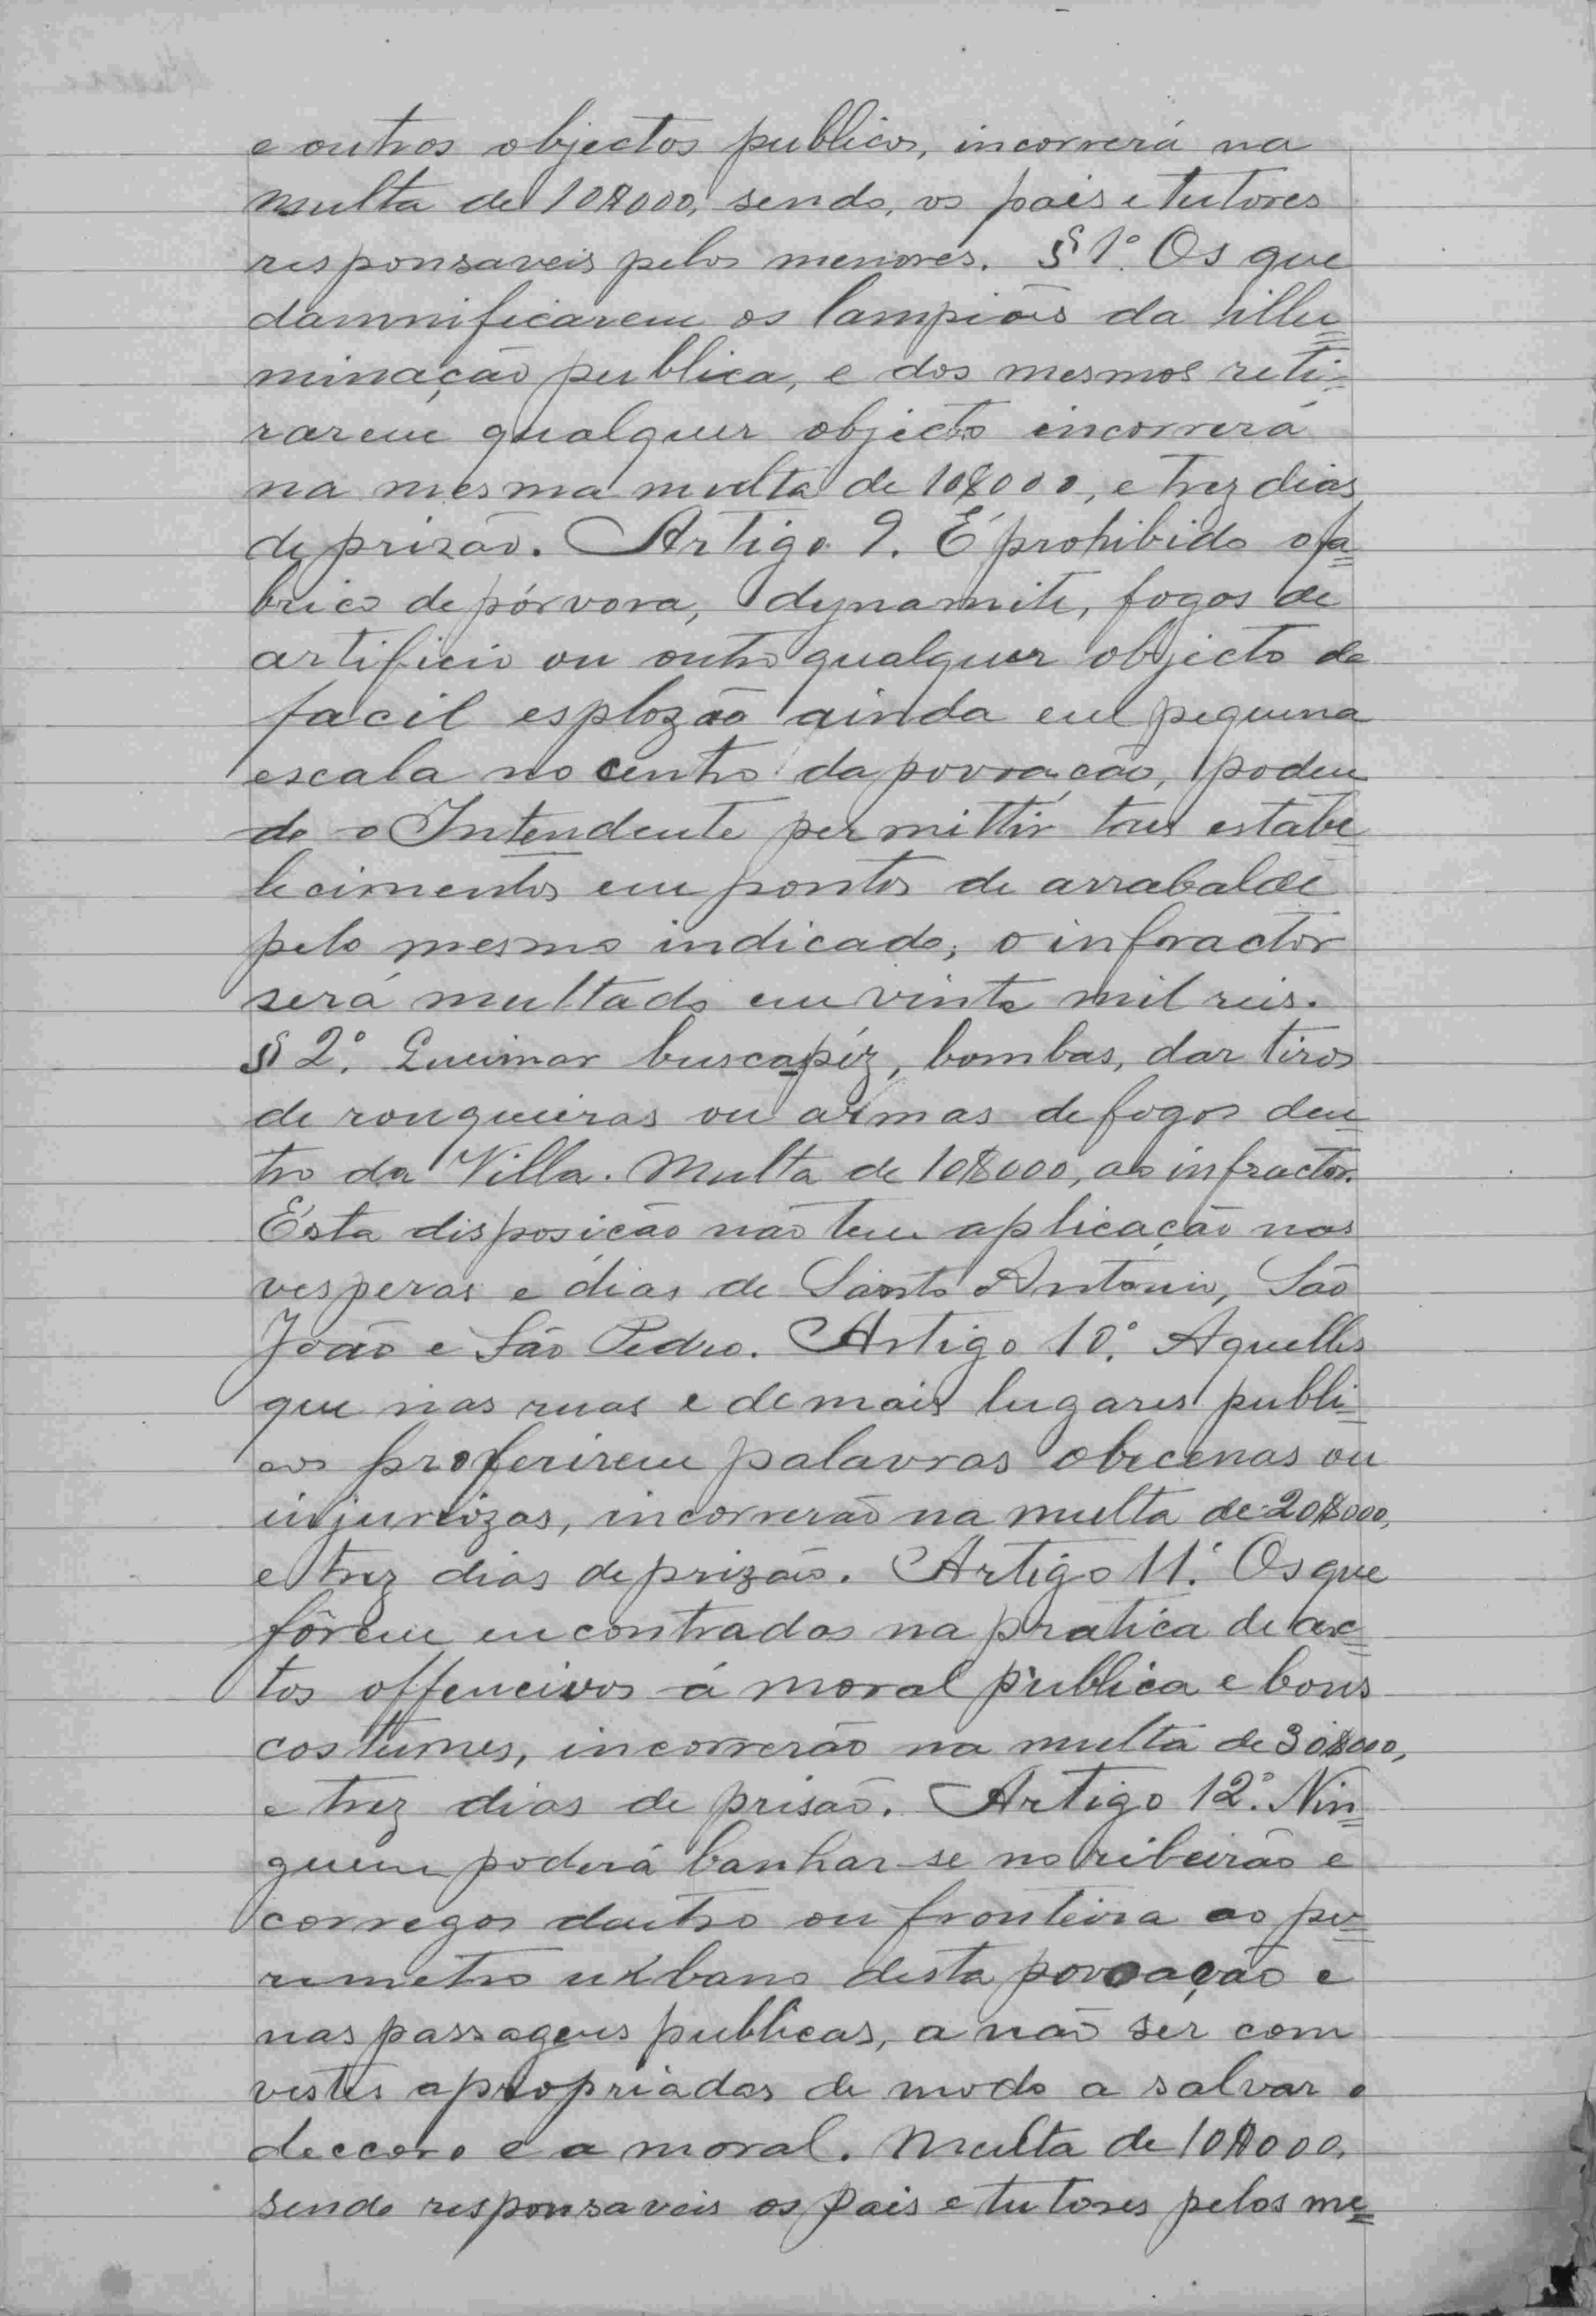 e outros objectos publicos, incorrerá na
multa de 10$000, sendo, os pais e tutores
responsaveis pelos menores. § 1º. Os que
damnificarem os lampiões da illu=
minação publica, e dos mesmos reti=
rarem qualquer objecto incorrerá
na mesma multa de 10$000, e trez dias
de prizão. Artigo 9. É prohibido o fa=
brico de pórvora, dynamite, fogos de
artificio ou outro qualquer objecto de
facil esplozão ainda em pequena
escala no centro da povoação, poden
do o Intendente permittir taes estabe=
lecimentos em pontos de arrabalde
pelo mesmo indicado; o infractor
será multado em vinte mil reis.
§ 2º. Queimar buscapéz, bombas, dar tiros
de ronqueiras ou armas de fogos den=
tro da Villa. Multa de 10$000, ao infractor.
Ésta disposição não tem aplicação nas
vesperas e dias de Santo Antonio, São
João e São Pedro. Artigo 10º. Aquelles
que nas ruas e demais lugares publi=
cos proferirem palavras obecenas ou
injuriozas, incorrerão na multa de 20$000,
e trez dias de prizão. Artigo 11º. Os que
fôrem encontrados na pratica de ac=
tos offencivos á moral publica e bons
costumes, incorrerão na multa de 30$000,
e trez dias de prisão. Artigo 12º. Nin=
guem poderá banhar-se no ribeirão e
corregos dentro ou fronteira ao pe=
rimetro urbano desta povoação e
nas passagens publicas, a não ser com
vestes apropriadas de modo a salvar o
deccoro e a moral. Multa de 10$000,
sendo responsaveis os pais e tutores pelos me=